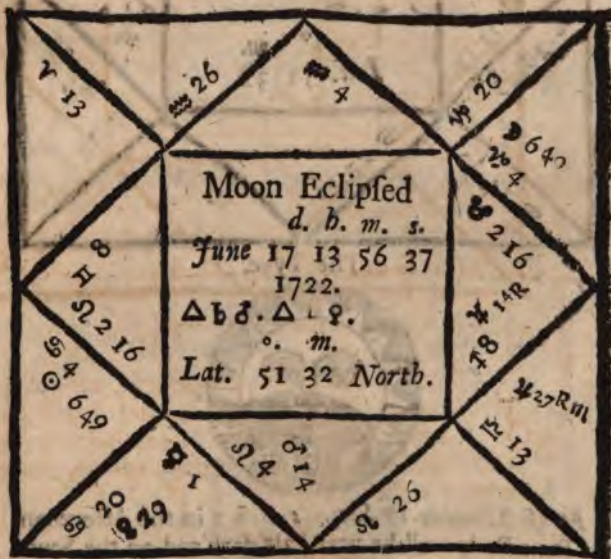 ♈ 13
♒ 26
♒ 4
♑ 20
☽ 6 49
♑ 4
☋ 2 16
14 R
♐ 8
♃ 27 R ♏
♎ 13
♌ 26
♂ 14
♌ 4
1
♋ 20
29
♋ 4
☉ 6 49
♊ 8
☊ 2 16
Moon Eclipſed
d. h. m. s.
June 17 13 56 37
1722.
△ ♄ ♂. △ ♀.
o. m.
Lat. 51 32 North.